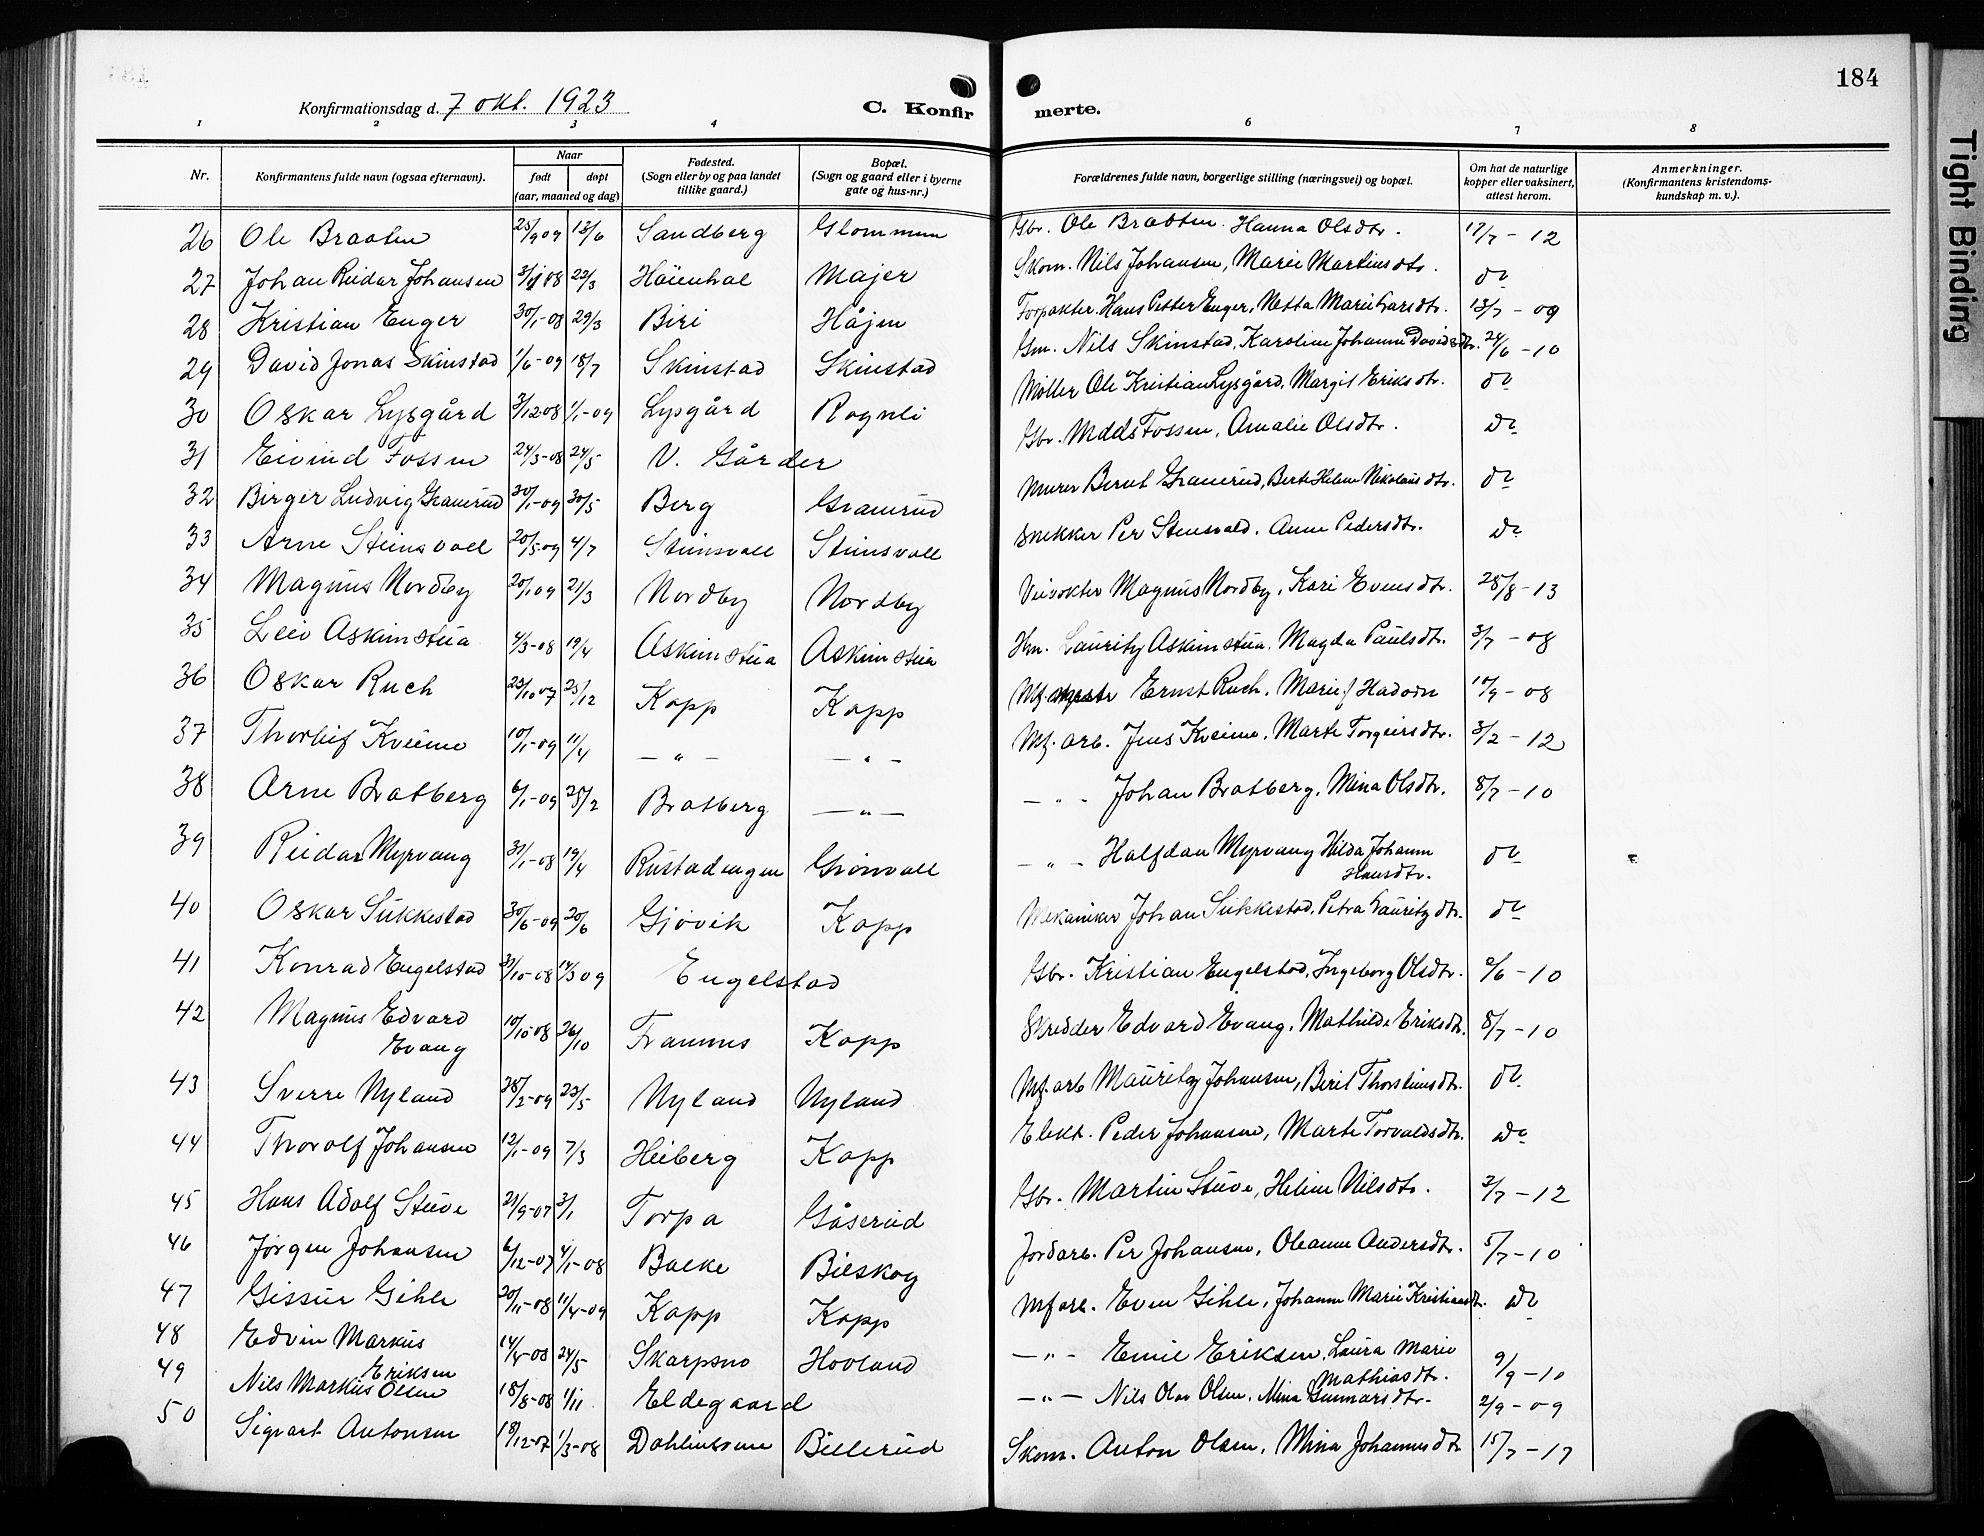 184
Konfirmationsdag d. 7 okt. 1923
C. Konfirmerte.
1 2 3 4 6 7 8
Nr. | Konfirmantens fulde navn (ogsaa efternavn). | Naar født døpt (aar, maaned og dag) | Fødested. (Sogn eller by og paa landet tillike gaard.) | Bopæl. (Sogn og gaard eller i byerne gate og hus-nr.) | Forældrenes fulde navn, borgerlige stilling (næringsvei) og bopæl. | Om hat de naturlige kopper eller vaksinert, attest herom. | Anmerkninger. (Konfirmantens kristendomskundskap m. v.).
26 Ole Braaten 25/9 09 13/6 Sandberg Glommen Gbr. Ole Braaten. Hanna Olsdtr. 17/7 - 12
27 Johan Reidar Johansen 08 22/3 Majer Skom. Nils Johansen, Marie Martinsdtr. do
28 Kristian Enger 30/1-08 29/3 Biri Håjen Forpakter. Hans Petter Enger, Netta Marie Larsdtr. 13/7 - 09
29 David Jonas Skinstad 1/6-09 18/7 Skinstad Skinstad Gm. Nils Skinstad, Karoline Johanne Davidsdtr. 24/6 - 10
30 Oskar Lysgård 3/12-08 1/1-09 Lysgård Rognli Møller Ole Kristian Lysgård, Margit Eriksdtr. do
31 Eivind Fossen 24/3-08 24/5 V. Gårder Gbr. Mads Fossen, Amalie Olsdtr. do
32 Birger Ludvig Granerud 30/1-09 30/5 Berg Granerud Murer Bernt Granerud, Berte Helene Nikolaisdtr. do
33 Arne Steinsvoll 20/5-09 4/7 Steinsvoll Steinsvoll Snekker Per Steinsvold. Anne Pedersdtr. do
34 Magnus Nordby 20/1 09 21/3 Nordby Nordby Veivokter Magnus Nordby, Kari Evensdtr. 28/8 - 13
35 Leiv Askimstua 4/3-08 19/4 Askimstua Askimstua Hm. Lauritz Askimstua. Magda Paulsdtr. 3/7 - 08
36 Oskar Ruch 23/10 07 25/12 Kapp Kapp Ernst Ruch. Marie f. Hadorn 10/9 - 08
37 Thorleif Kveime 10/1-09 11/4 - " - - " - Mf. arb. Jens Kveime. Marte Torgeirsdtr. 3/2 - 12
38 Arne Bratberg 6/1-09 28/2 Bratberg - " - - " - Johan Bratberg. Mina Olsdtr. 8/7 - 10
39 Reidar Myrvang 31/1-08 19/4 Rustadengen Grønvoll - " - Halfdan Myrvang Hilda Johanne
Hansdtr. do
40 Oskar Sukkestad 30/6-09 20/6 Gjøvik Kapp Mekaniker Johan Sukkestad, Petra Lauritzdtr. do
41 Konrad Engelstad 31/10-08 14/3 09 Engelstad Gbr. Kristian Engelstad, Ingeborg Olsdtr. 2/6 - 10
42 Magnus Edvard
Evang 10/10-08 26/10 Framnes Kapp Skredder Edvard Evang. Mathilde Eriksdtr. 8/7 - 10
43 Sverre Nyland 28/2-09 23/5 Nyland Nyland Mf. arb Mauritz Johansen, Berit Thorsteinsdtr. do
44 Thorolf Johansen 12/1-09 7/3 Heiberg Kapp Elekt. Peder Johansen, Marte Torvaldsdtr. do
45 Hans Adolf Stuve 21/9-07 3/1 Torpa Gåserud Gbr. Martin Stuve, Heline Nilsdtr. 2/7 - 12
46 Jørgen Johansen 6/12-07 4/1-08 Balke Bilskog Jordarb. Per Johansen, Oleanne Andersdtr. 5/7 - 10
47 Gissur Gihle 20/11-08 11/4-09 Kapp Kapp Mf arb. Even Gihle, Johanne Marie Kristiansdtr. do
48 Edvin Markus
Eriksen 14/4-08 24/5 Skarpsno Hovland - " - Emil Eriksen, Laura Marie
Mathiasdtr. 9/9 - 10
49 Nils Markus Olsen 18/8-08 1/11 Eldegaard - " - Nils Olav Olsen, Mina Gunnarsdtr. 2/9 - 09
50 Sigvart Antonsen 18/12-07 1/3-08 Billerud Skom. Anton Olsen, Mina Johannesdtr 15/7 - 17
Tight Binding